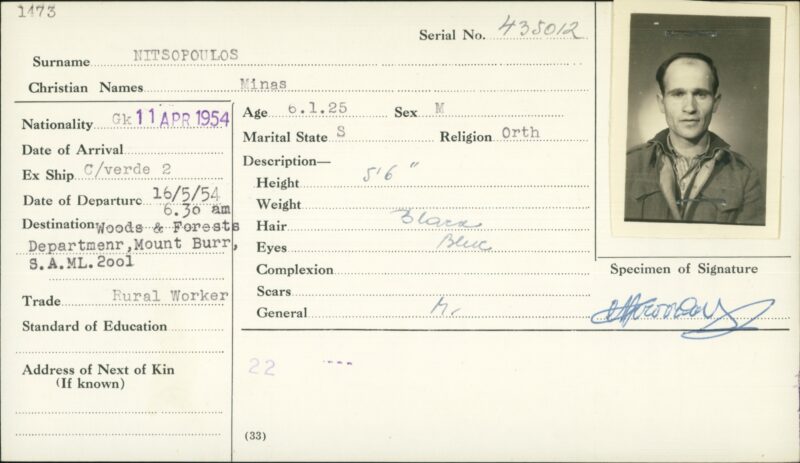 1473
Serial No. 435012
Surname NITSOPOULOS
Christian Names Minas
Nationality Gk 11 APR 1954
Date of Arrival
Ex Ship C/verde 2
Date of Departure 16/5/54
6.30 am
Destination Woods & Forests
Departmenr, Mount Burr,
S.A.ML.2001
Trade Rural Worker
Standard of Education
Address of Next of Kin
(If known)
Age 6.1.25 Sex M
Marital State S Religion Orth
Description—
Height 5'6"
Weight
Hair Black
Eyes Blue
Complexion
Scars
General
22 ----
(33)
Specimen of Signature